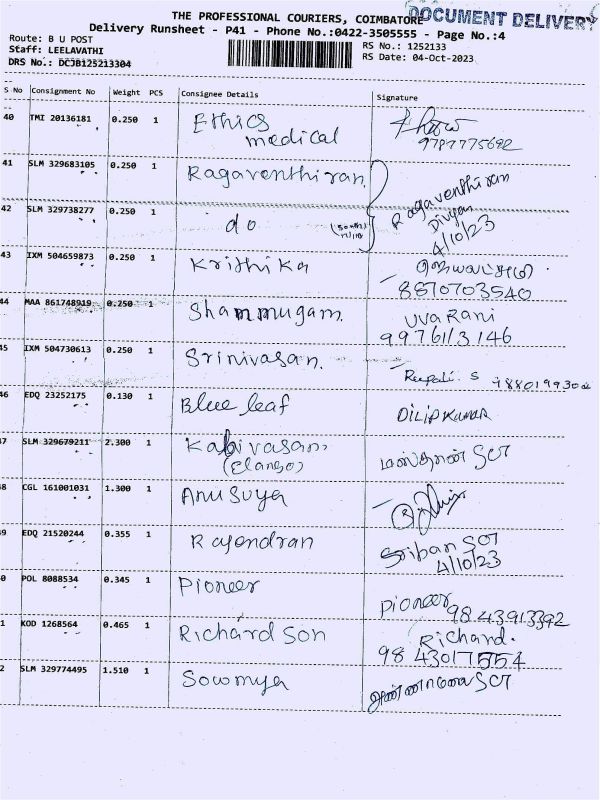 THE PROFESSIONAL COURIERS, COIMBATORE
DOCUMENT DELIVERY
Delivery Runsheet - P41 - Phone No.:0422-3505555 - Page No.:4
Route: B U POST
RS No.: 1252133
Staff: LEELAVATHI
RS Date: 04-Oct-2023
DRS No.: DCJB125213304
S No Consignment No Weight PCS Consignee Details Signature
40 TMI 20136181 0.250 1 Ethics medical
9787775692
41 SLM 329683105 0.250 1 Ragaventhiran
Ragaventhiran
Divyan
4/10/23
42 SLM 329738277 0.250 1 do
43 IXM 504659873 0.250 1 Krithika
8870703540
44 MAA 861748919 0.250 1 Shanmugam.
Uva Rani
9976113146
45 IXM 504730613 0.250 1 Srinivasan.
Rupali. S
46 EDQ 23252175 0.130 1 Blue leaf DILIP KUMAR
47 SLM 329679211 2.300 1 Kabivasan
(Elango)
48 CGL 161001031 1.300 1 Anusuya
49 EDQ 21520244 0.355 1 Rajendran
4/10/23
0 POL 8088534 0.345 1 Pioneer Pioneer
9843913392
1 KOD 1268564 0.465 1 Richard Son Richand.
9843017554
2 SLM 329774495 1.510 1 Sowmya